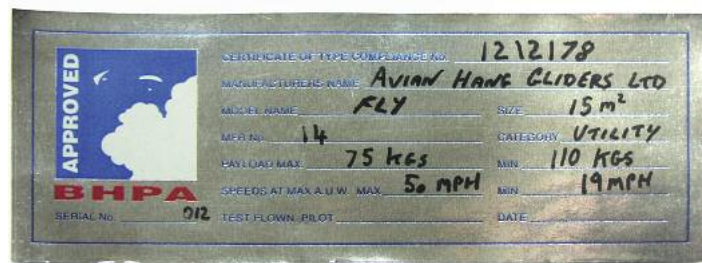 APPROVED
BHPA
CERTIFICATE OF TYPE COMPLIANCE No. 1212178
MANUFACTURERS NAME AVIAN HANG GLIDERS LTD
MODEL NAME FLY SIZE 15 m²
MFR No. 14 CATEGORY UTILITY
PAYLOAD MAX 75 KGS MIN 110 KGS
SPEEDS AT MAX A.U.W. MAX 50 MPH MIN 19 MPH
SERIAL No. 012 TEST FLOWN. PILOT DATE